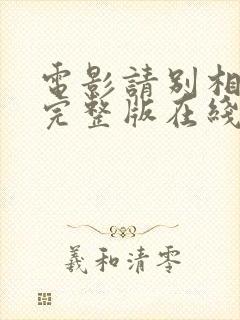 電影請別相
完整版在綫
羲和清零